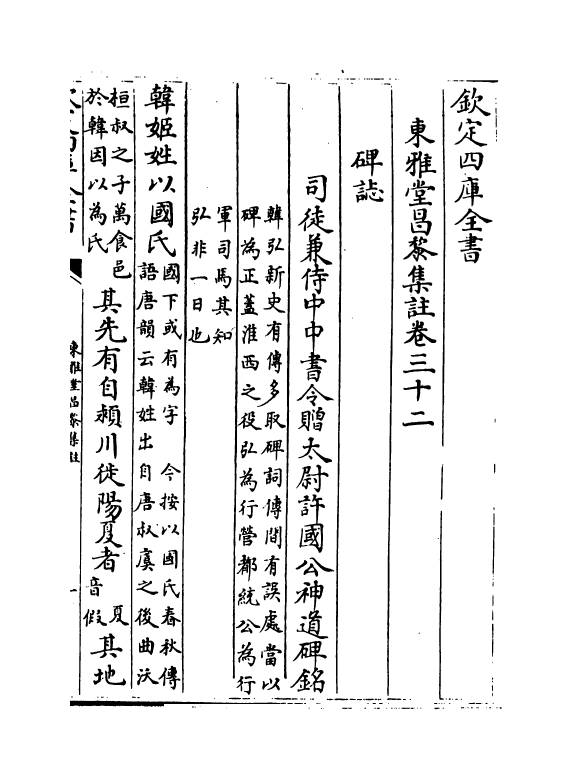 欽定四庫全書
東雅堂昌黎集註卷三十二
碑誌
司徒兼侍中中書令贈太尉許國公神道碑銘
韓弘新史有傳多取碑詞傳間有誤處當以
碑為正蓋淮西之役弘為行營都統公為行
軍司馬其知
弘非一日也
韓姬姓以國氏
國下或有為字 今按以國氏春秋傳
語唐韻云韓姓出自唐叔虞之後曲沃
桓叔之子萬食邑
於韓因以為氏
其先有自潁川徙陽夏者
夏
音假
其地
東雅堂昌黎集註
一